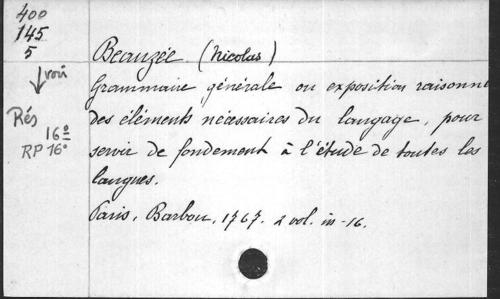 400
145
5
voir
Rés
16°
RP 16°
Beauzée (Nicolas)
Grammaire générale ou exposition raisonné
des éléments nécessaires du langage, pour
servir de fondement à l'étude de toutes les
langues.
Paris, Barbou, 1767. 2 vol. in-16.